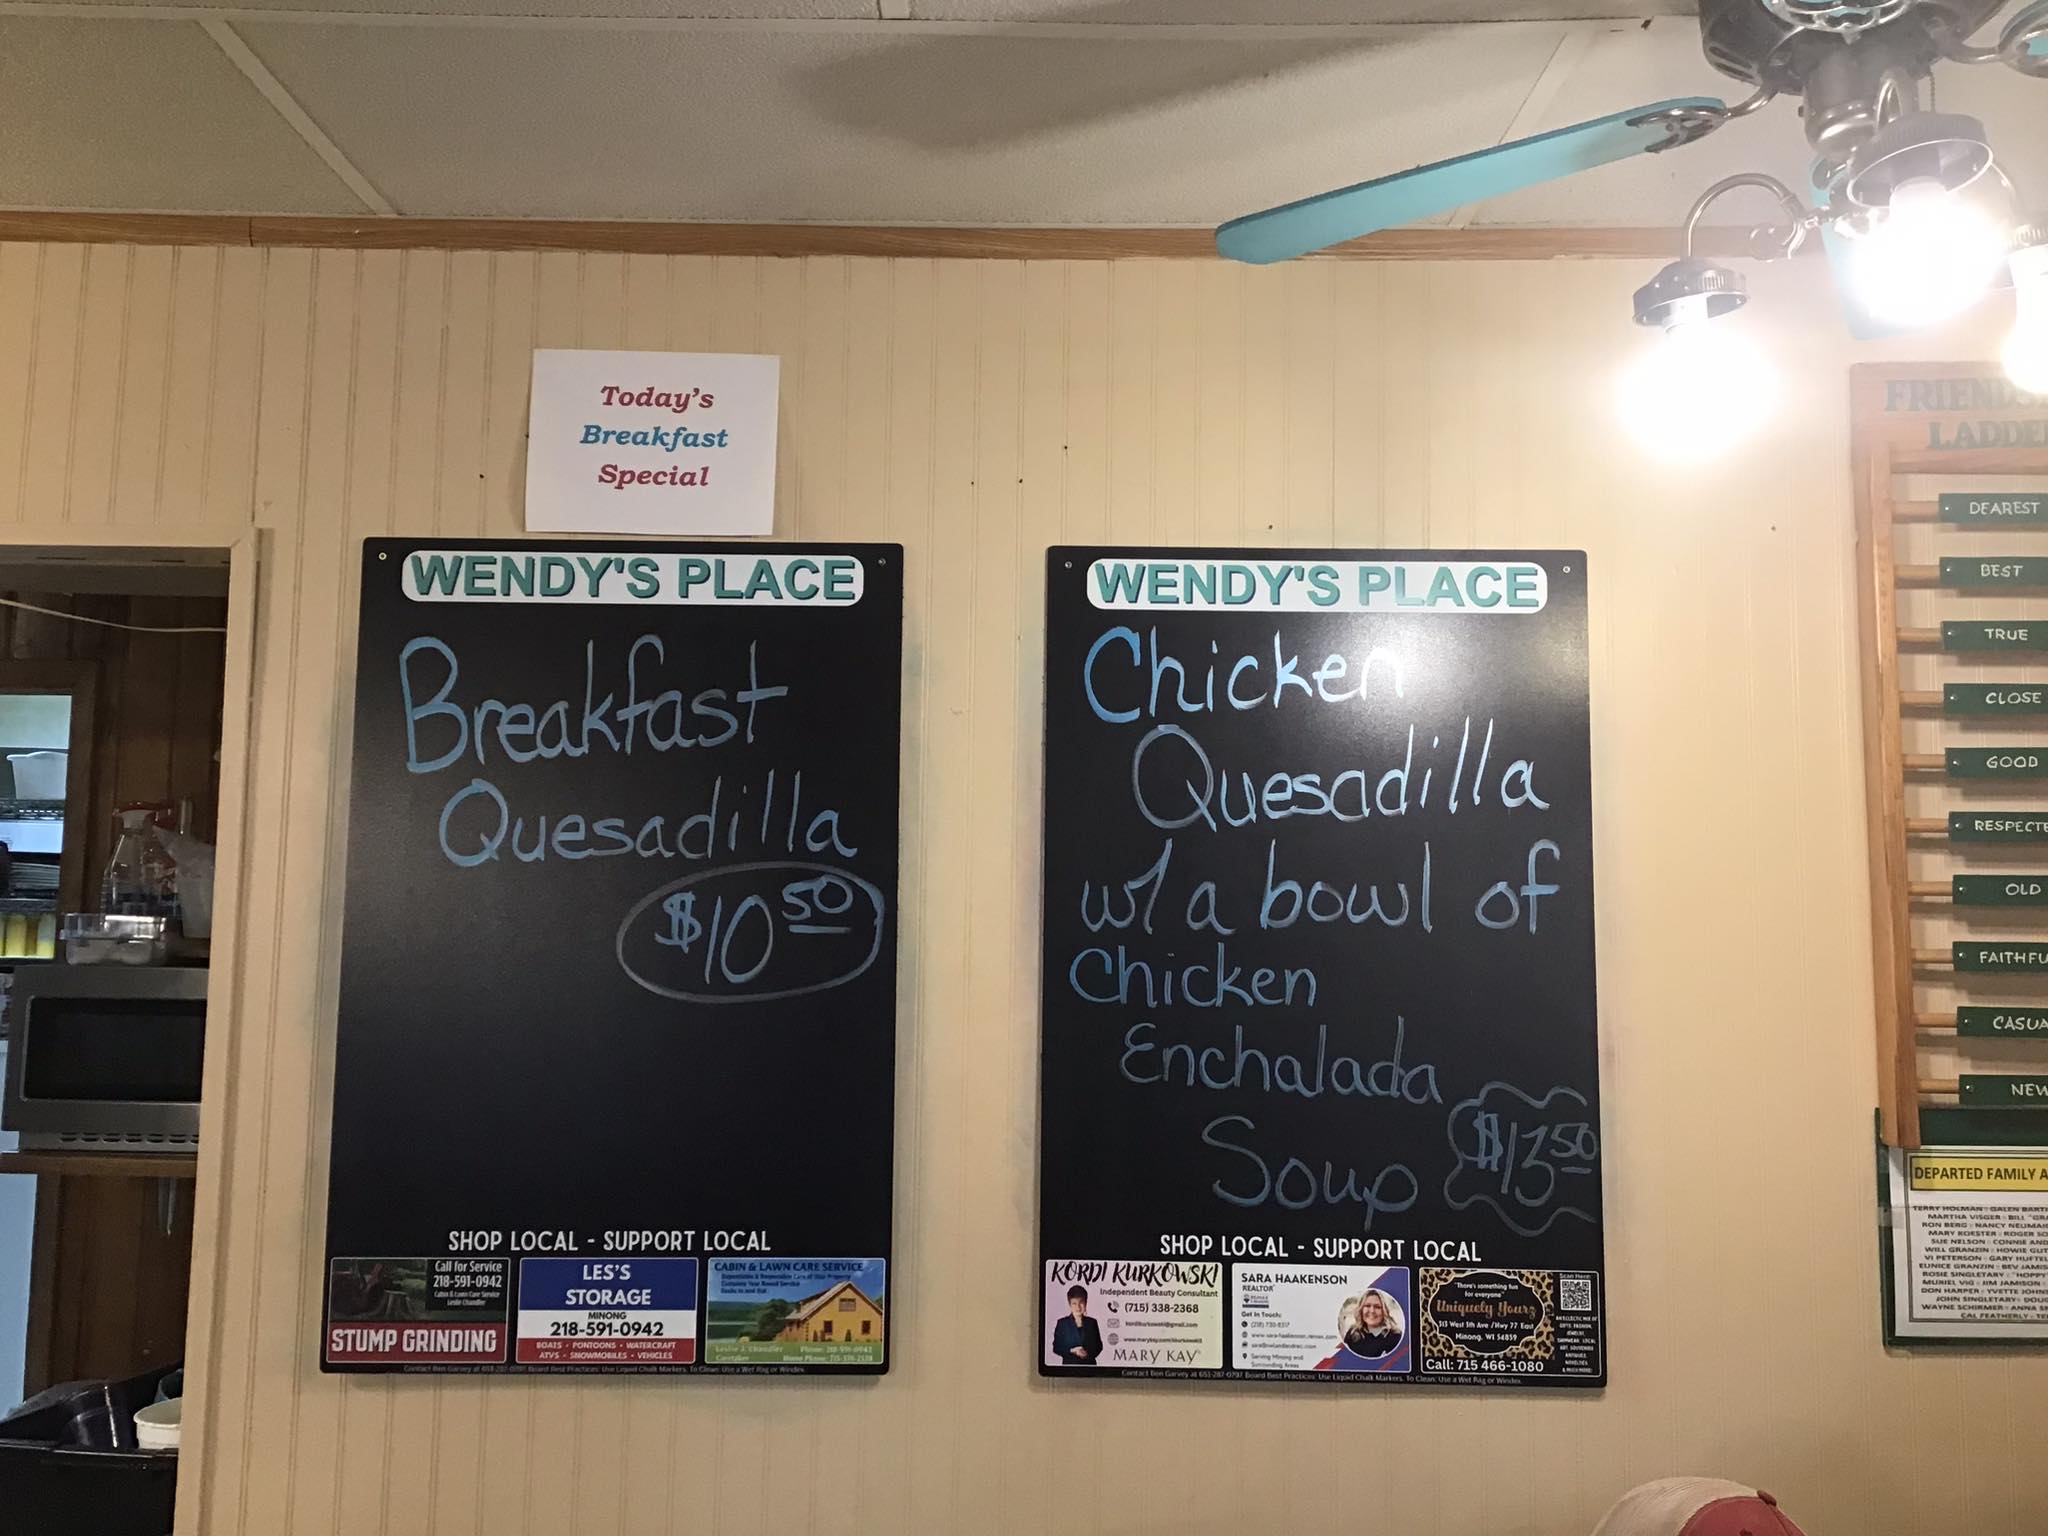 Today's
Breakfast
Special
WENDY'S PLACE
Breakfast
Quesadilla
$10 50
SHOP LOCAL - SUPPORT LOCAL
Call for Service
218-591-0942
Cabin & Lawn Care Service
Leslie Chandler
STUMP GRINDING
LES'S
STORAGE
MINONG
218-591-0942
BOATS • PONTOONS • WATERCRAFT
ATVS • SNOWMOBILES • VEHICLES
CABIN & LAWN CARE SERVICE
Dependable & Responsible Care of Your Property
Complete Year Round Service
Leslie J. Chandler
Caretaker
Phone: 218-591-0942
Contact Ben Garvey at 651-287-0797 Board Best Practices: Use Liquid Chalk Markers. To Clean: Use a Wet Rag or Windex.
WENDY'S PLACE
Chicken
Quesadilla
w/ a bowl of
Chicken
Enchalada
Soup $13 50
SHOP LOCAL - SUPPORT LOCAL
KORDI KURKOWSKI
Independent Beauty Consultant
(715) 338-2368
kordikurkowski@gmail.com
MARY KAY
SARA HAAKENSON
REALTOR
Get In Touch:
(218) 730-8317
Serving Minong and
Surrounding Areas
"There's something fun
for everyone"
Uniquely Yourz
513 West 5th Ave /Hwy 77 East
Minong, WI 54859
Call: 715 466-1080
Scan Here:
Contact Ben Garvey at 651-287-0797 Board Best Practices: Use Liquid Chalk Markers. To Clean: Use a Wet Rag or Windex.
FRIENDS
LADDE
DEAREST
BEST
TRUE
CLOSE
GOOD
RESPECTE
OLD
FAITHFU
CASUA
NEW
DEPARTED FAMILY A
TERRY HOLMAN
MARTHA VISGER
RON BERG NANCY NEUMA
MARY KOESTER ROGER SO
SUE NELSON CONNIE AND
WILL GRANZIN HOWIE GUT
VI PETERSON GARY HUFTEL
EUNICE GRANZIN BEV JAMIS
ROSIE SINGLETARY "HOPPY"
MURIEL VIG JIM JAMISON
DON HARPER YVETTE JOHNS
JOHN SINGLETARY DOUG
WAYNE SCHIRMER ANNA S
CAL FEATHERLY TE